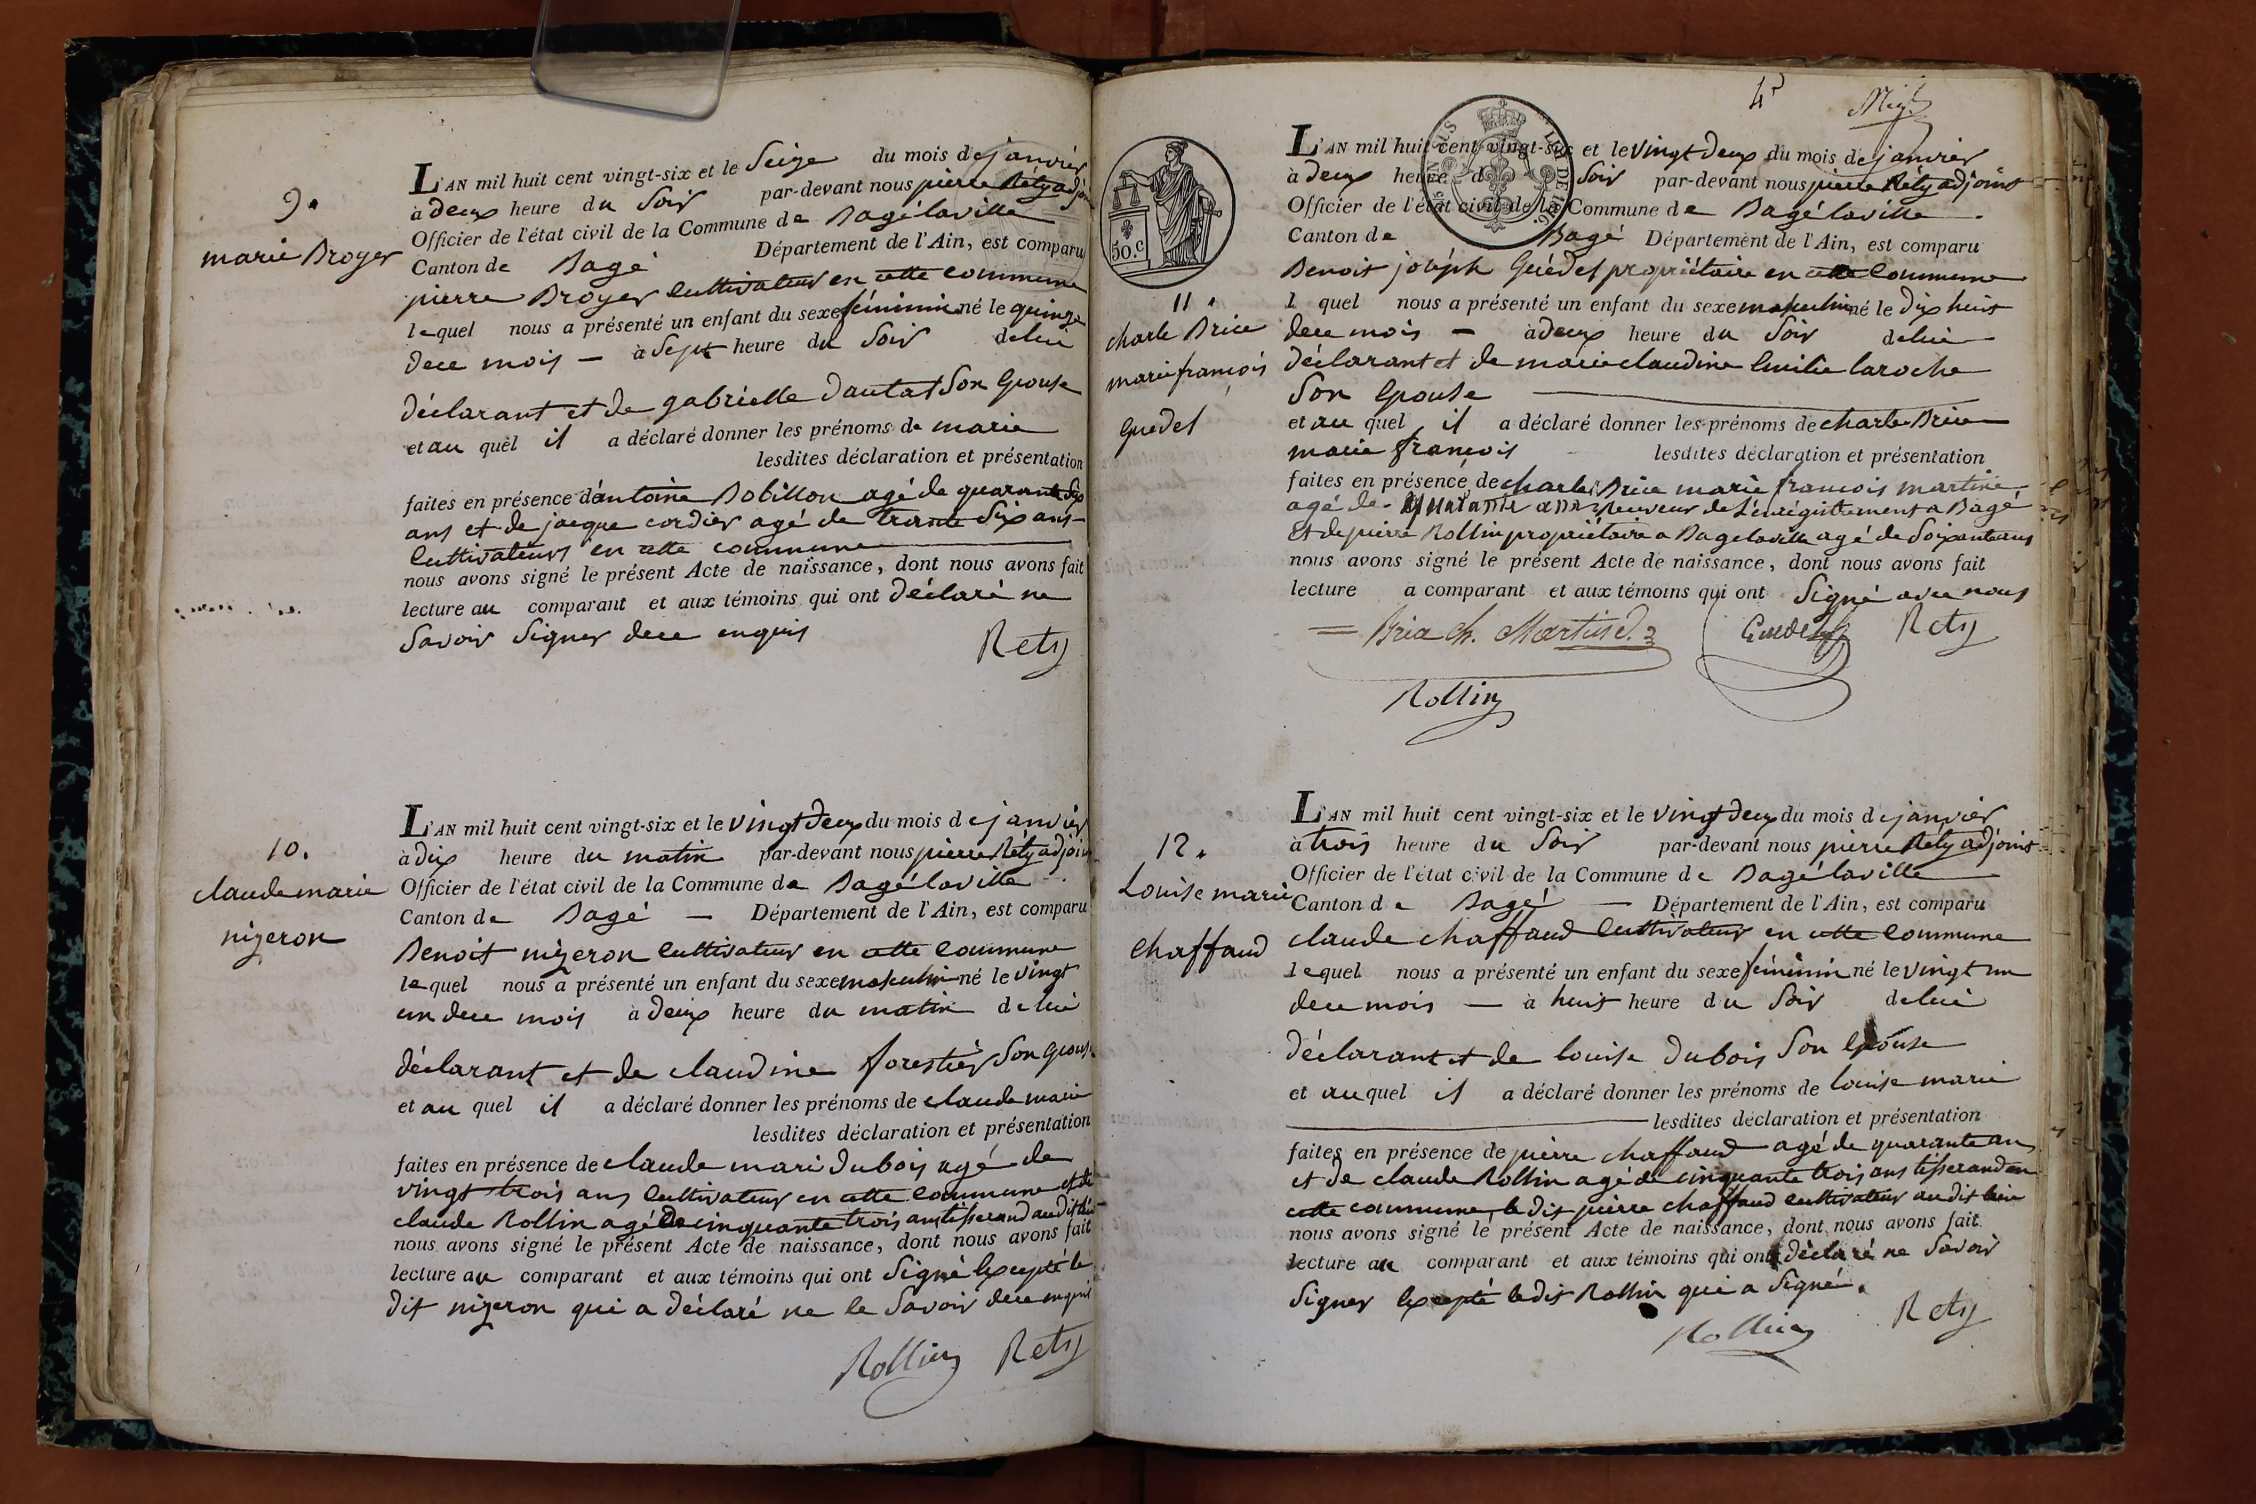 9.
marie Broyer
L'AN mil huit cent vingt-six et le Seize du mois de janvier
à deux heure du Soir par-devant nous pierre Réty adjoint
Officier de l'état civil de la Commune de Bagélaville
Canton de Bagé Département de l'Ain, est comparu
pierre Broyer cultivateur en cette commune
lequel nous a présenté un enfant du sexe féminin né le quinze
de ce mois — à Sept heure du Soir de lui
déclarant et de gabrielle dautat Son Epouse
et au quel il a déclaré donner les prénoms de marie
lesdites déclaration et présentation
faites en présence d'antoine Bobillon agé de quarante Six
ans et de jacque cordier agé de trante Six ans
cultivateurs en cette commune
nous avons signé le présent Acte de naissance, dont nous avons fait
lecture au comparant et aux témoins qui ont déclaré ne
Savoir Signer de ce enquis
Rety
10.
claude marie
nizeron
L'AN mil huit cent vingt-six et le vingt deux du mois de janvier
à dix heure du matin par-devant nous pierre Réty adjoint
Officier de l'état civil de la Commune de Bagélaville
Canton de Bagé — Département de l'Ain, est comparu
Benoit nizeron cultivateur en cette commune
lequel nous a présenté un enfant du sexe masculin né le vingt
un de ce mois à deux heure du matin de lui
déclarant et de claudine forestier Son Epouse
et au quel il a déclaré donner les prénoms de claude marie
lesdites déclaration et présentation
faites en présence de claude mari dubois agé de
vingt trois ans cultivateur en cette commune et de
claude Rollin agé de cinquante trois ans tisserand au dit lieu
nous avons signé le présent Acte de naissance, dont nous avons fait
lecture au comparant et aux témoins qui ont Signé Excepté le
dit nizeron qui a déclaré ne le Savoir de ce enquis
Rollin Rety
50.c
11.
charle Brice
marie françois
Guedel
L'AN mil huit cent vingt-six et le vingt deux du mois de janvier
à deux heure du Soir par-devant nous pierre Réty adjoint
Officier de l'état civil de la Commune de Bagélaville
Canton de Bagé Département de l'Ain, est comparu
Benoit joséph Guédel propriétaire en cette commune
l quel nous a présenté un enfant du sexe masculin né le dix huit
de ce mois — à deux heure du Soir de lui
déclarant et de marie claudine Emilie laroche
Son Epouse
et au quel il a déclaré donner les prénoms de charle Brice
marie françois lesdites déclaration et présentation
faites en présence de charles Brice marie françois martine
agé de quarante ans receveur de l'enrégistrement a Bagé
et de pierre Rollin propriétaire a Bagelaville agé de Soixante ans
nous avons signé le présent Acte de naissance, dont nous avons fait
lecture a comparant et aux témoins qui ont Signé avec nous
Brice Ch. Martine Guedel Rety
Rollin
12.
Louise marie
chaffaud
L'AN mil huit cent vingt-six et le vingt deux du mois de janvier
à trois heure du Soir par-devant nous pierre Réty adjoint
Officier de l'état civil de la Commune de Bagélaville
Canton de Bagé — Département de l'Ain, est comparu
claude chaffaud cultivateur en cette commune
lequel nous a présenté un enfant du sexe féminin né le vingt un
de ce mois — à huit heure du Soir de lui
déclarant et de louise dubois Son Epouse
et au quel il a déclaré donner les prénoms de louise marie
lesdites déclaration et présentation
faites en présence de pierre chaffaud agé de quarante ans
et de claude Rollin agé de cinquante trois ans tisserand en
cette commune, le dit pierre chaffaud cultivateur au dit lieu
nous avons signé le présent Acte de naissance, dont nous avons fait
lecture au comparant et aux témoins qui ont déclaré ne Savoir
Signer Excepté le dit Rollin qui a Signé.
Rollin Rety